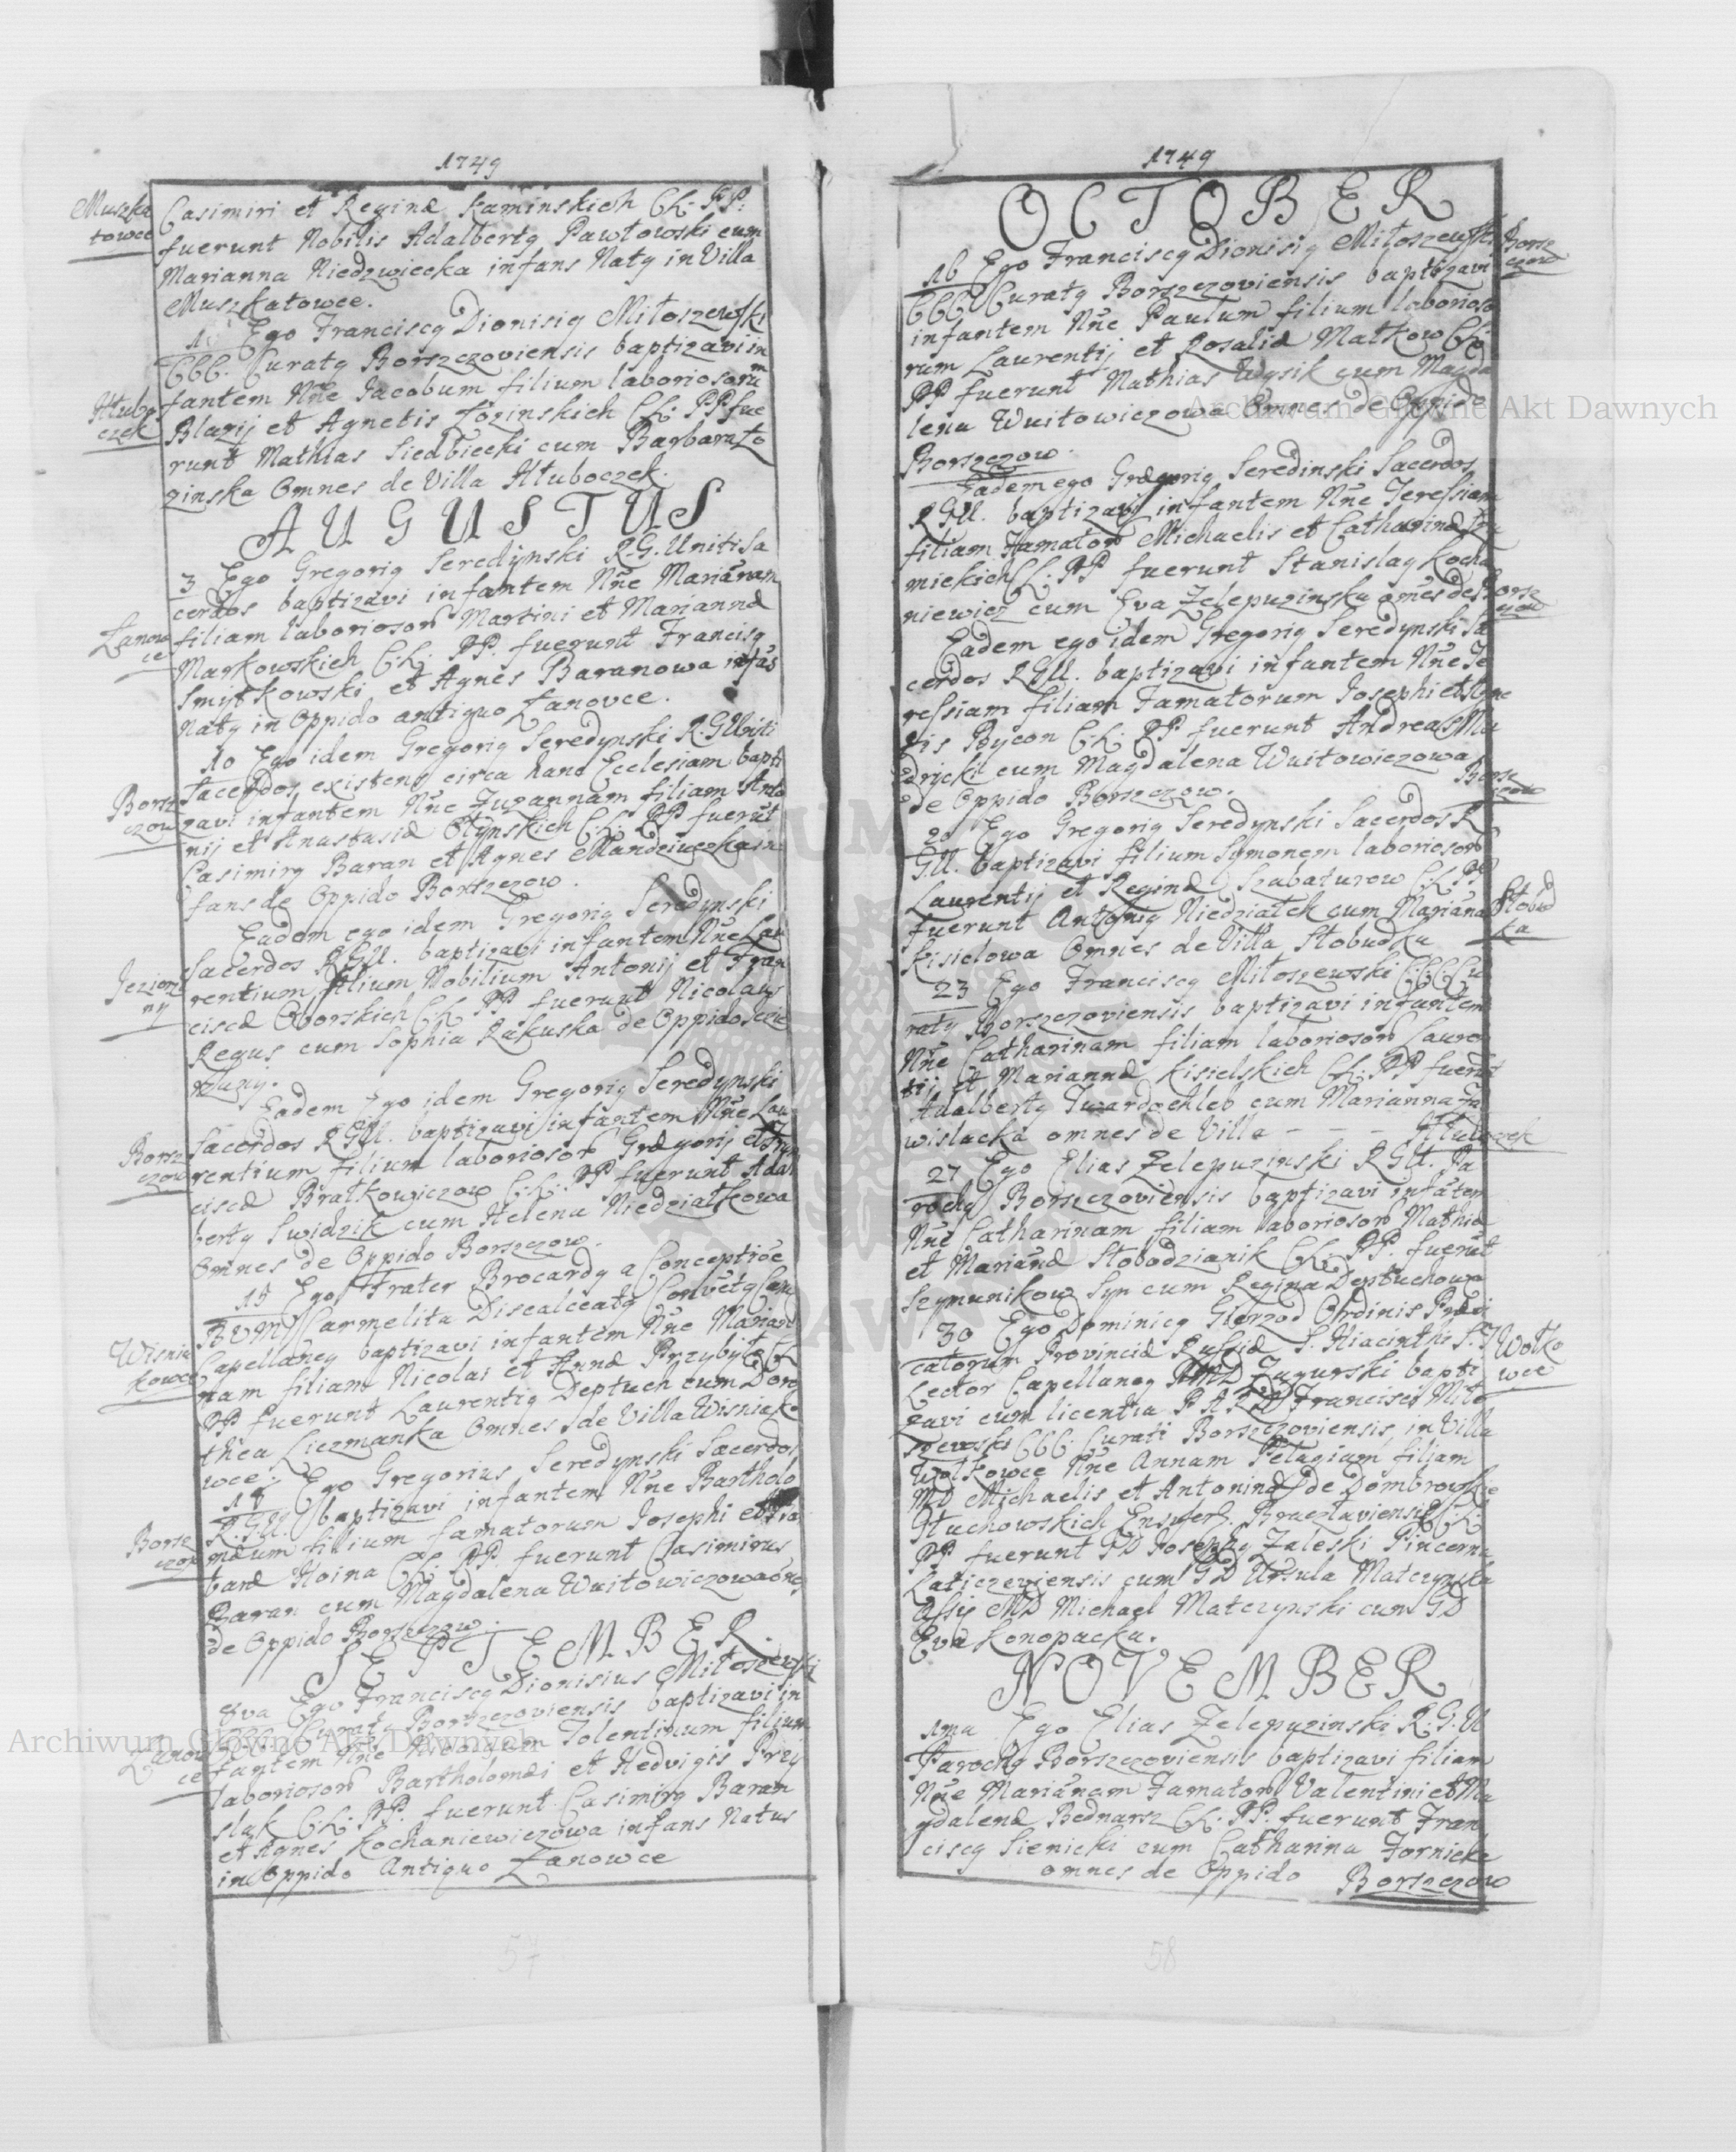 1749
Muszka
towce
Casimiri et Reginæ Kaminskich CL: PP:
fuerunt Nobilis Adalbertq Pawłowski cum
Marianna Niedzwiecka infans Natq in Villa
Muszkatowce.
Ego Franciscq Dionisiq Miłoszewski
CCC. Curatq Borszczoviensis baptizavi in
Hłubo
czek
fantem Nñe Jacobum filium laboriosorum
Blazij et Agnetis Łozinskich CL: PP fue
runt Mathias Siedlecki cum Barbara Ło
zinska Omnes de Villa Hłuboczek.
AUGUSTUS
3 Ego Gregoriq Seredynski R.G. Uniti Sa
cerdos baptizavi infantem Nñe Mariãnam
Łanow
ce
filiam laborioson Martini et Mariannæ
Markowskich CL: PP. fuerunt Francisq
Smistkowski et Agnes Baranowa infãs
Natq in Oppido antiquo Łanovce.
10 Ego idem Gregoriq Seredynski R.GUniti
Sacerdos existens circa hanc Ecclesiam bapti
Borsz
czow
zavi infantem Nñe Zuzannam filiam Anto
nij et Anastasiæ Olynskich CL: PP fuerũt
Casimirq Baran et Agnes Mandziuczka in
fans de Oppido Borszczow.
Eadem ego idem Gregoriq Seredynski
Sacerdos RGU. baptizavi infantem Nñe Lau
Jezierz
ny
rentium filium Nobilium Antonij et Fran
ciscæ Oborskich CL PP fuerunt Nicolaus
Regus cum Sophia Rakuska de Oppido Jezie
rzany.
Eadem Ego idem Gregoriq Seredynski
Sacerdos RGU. baptizavi infantem Nñe Lau
Borsz
czow
rentium filium laborioson Grægorij et Fran
ciscæ Bratkowiczow CL: PP fuerunt Adal
bertq Swidzik cum Helena Niedziałkowa
Omnes de Oppido Borszczow.
15 Ego Frater Brocardq a Conceptiõe
BVM Carmelita Discalceatq Convẽtq
Wisnia
kowce
Capellanq baptizavi infantem Nñe Marian
nam filiam Nicolai et Annæ Przybyła CL
PP fuerunt Laurentiq Deptuch cum Doro
thea Liczmanka Omnes de Villa Wisniako
wce.
Ego Gregorius Seredynski Sacerdos
R.GU. baptizavi infantem Nñe Bartholo
Borsz
czow
mæum filium famatorum Josephi et Bar
baræ Hoina CL: PP. fuerunt Casimirus
Baran cum Magdalena Wuitowiczowa õnes
de Oppido Borszczow.
SEPTEMBER.
8va Ego Franciscq Dionisius Miłoszewski
CCC Curatq Borszczoviensis baptizavi in
Łanow
ce
fantem Nñe Nicolaum Tolentinum filium
laborioson Bartholomæi et Hedvigis Przy
slak CL: PP. fuerunt Casimirq Baran
et Agnes Kochaniewiczowa infans Natus
in Oppido Antiquo Łanowce
57
1749
OCTOBER
16 Ego Franciscq Dionisiq Miłoszewski
Borsz
czow
CCC Curatq Borszczoviensis baptizavi
infantem Nñe Paulum filium laborioso
rum Laurentij et Rosaliæ Małkow CL:
PP fuerunt Mathias Wysik cum Magda
lena Wuitowiczowa Omnes de Oppido
Borszczow.
Eadem ego Grægoriq Seredinski Sacerdos
RGU. baptizavi infantem Nñe Teressiam
filiam Famaton Michaelis et Catharinæ
mickich CL: PP fuerunt Stanislaq Kocha
niewicz cum Eva Zelepuzinska omẽs de Borsz
czow
Eadem ego idem Gregoriq Seredynski Sa
cerdos RGU. baptizavi infantem Nñe Te
ressiam filiam Famatorum Josephi et Agne
tis Bycon CL: PP fuerunt Andreas Mu
drycki cum Magdalena Wuitowiczowa
de Oppido Borszczow.
Borsz
czow
20 Ego Gregoriq Seredynski Sacerdos R
GU. baptizavi filium Symonem laborioson
Laurentij et Reginæ Szabaturow CL PP
fuerunt Antoniq Niedziałek cum Mariãna
Słobud
ka
Kisielowa Omnes de Villa Słobudka
23 Ego Franciscq Miłoszewski CCC Cu
ratq Borszczoviensis baptizavi infantem
Nñe Catharinam filiam laborioson Lauren
tij et Mariannæ Kisielskich CL: PP fuerũt
Adalbertq Twardochleb cum Marianna Ja
wislacka omnes de Villa - - - Hłuboczek
27 Ego Elias Zelepuzinski RGU. Pa
rochq Borszczoviensis baptizavi infãtem
Nñe Catharinam filiam laborioson Mathiæ
et Mariãnæ Słobodzianik CL: PP. fuerũt
Szymunikow Syn cum Regina Deptuchowa
30 Ego Dominicq Ordinis Prædi
catorum Provinciæ Russiæ S. Hiacinthi S.T
Wołko
wce
Lector Capellanq MD Zagurski bapti
zavi cum licentia P A R D Francisci Miło
szewski CCC. Curati Borszczoviensis in Villa
Wołkowce Nñe Annam Pelagiam filiam
MD Michaelis et Antoninæ de Dombrowskie
Głuchowskich Ensifer: Bracłaviensis CL:
PP fuerunt GD Josephq Zaleski Pincerna
Laticzeviensis cum GD Ursula Matczynska
Assis MD Michael Matczynski cum GD
Eva Konopacka.
NOVEMBER
1ma Ego Elias Zelepuzinski R.G.U
Parochq Borszczoviensis baptizavi filiam
Nñe Mariãnam Famaton Valentini et Ma
gdalenæ Bednarsz CL: PP. fuerunt Fran
ciscq Sienicki cum Catharina Tarnicka
omnes de Oppido Borszczow
58
Archiwum Główne Akt Dawnych
Archiwum Główne Akt Dawnych